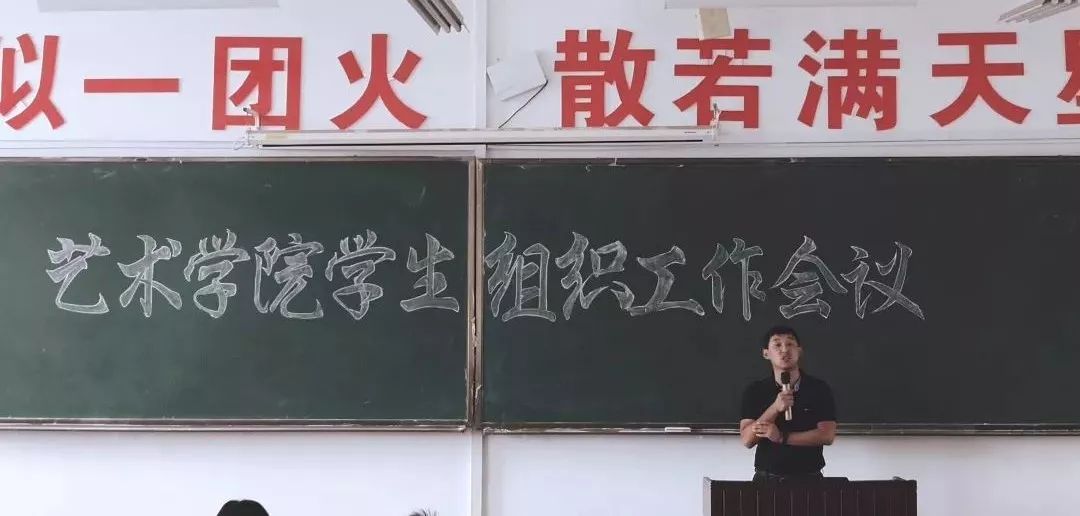 似一团火 散若满天星
艺术学院学生组织工作会议